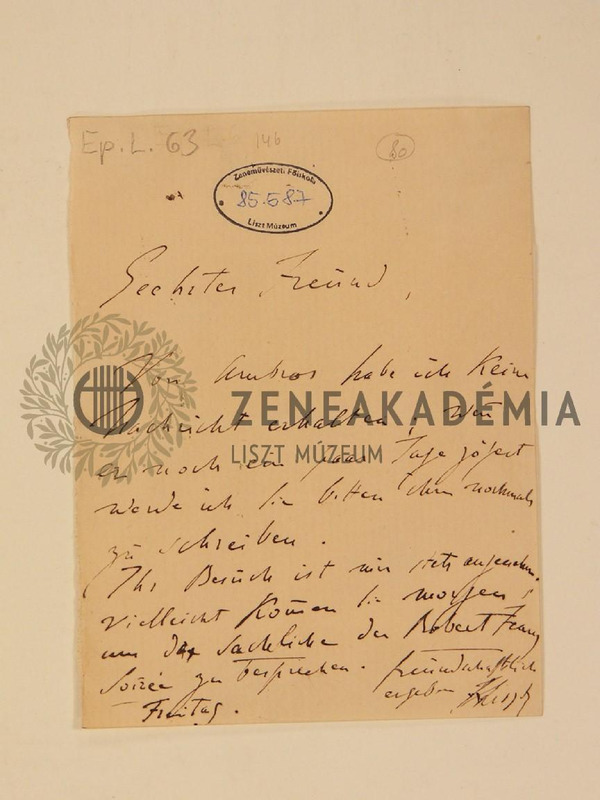 Ep. L. 63
146
80
Zeneművészeti Főiskola
85.587
Liszt Múzeum
Geehrter Freund,
Von Ambros habe ich keine
Nachricht erhalten; wenn
er noch ein paar Tage zögert
werde ich Sie bitten ihm nochmals
zu schreiben.
Ihr Besuch ist mir stets angenehm.
Vielleicht kommen Sie morgen
um das Sachliche der Robert Franz
Soirée zu besprechen. freundschaftlich
Freitag. ergeben FLiszt
ZENEAKADÉMIA
LISZT MÚZEUM